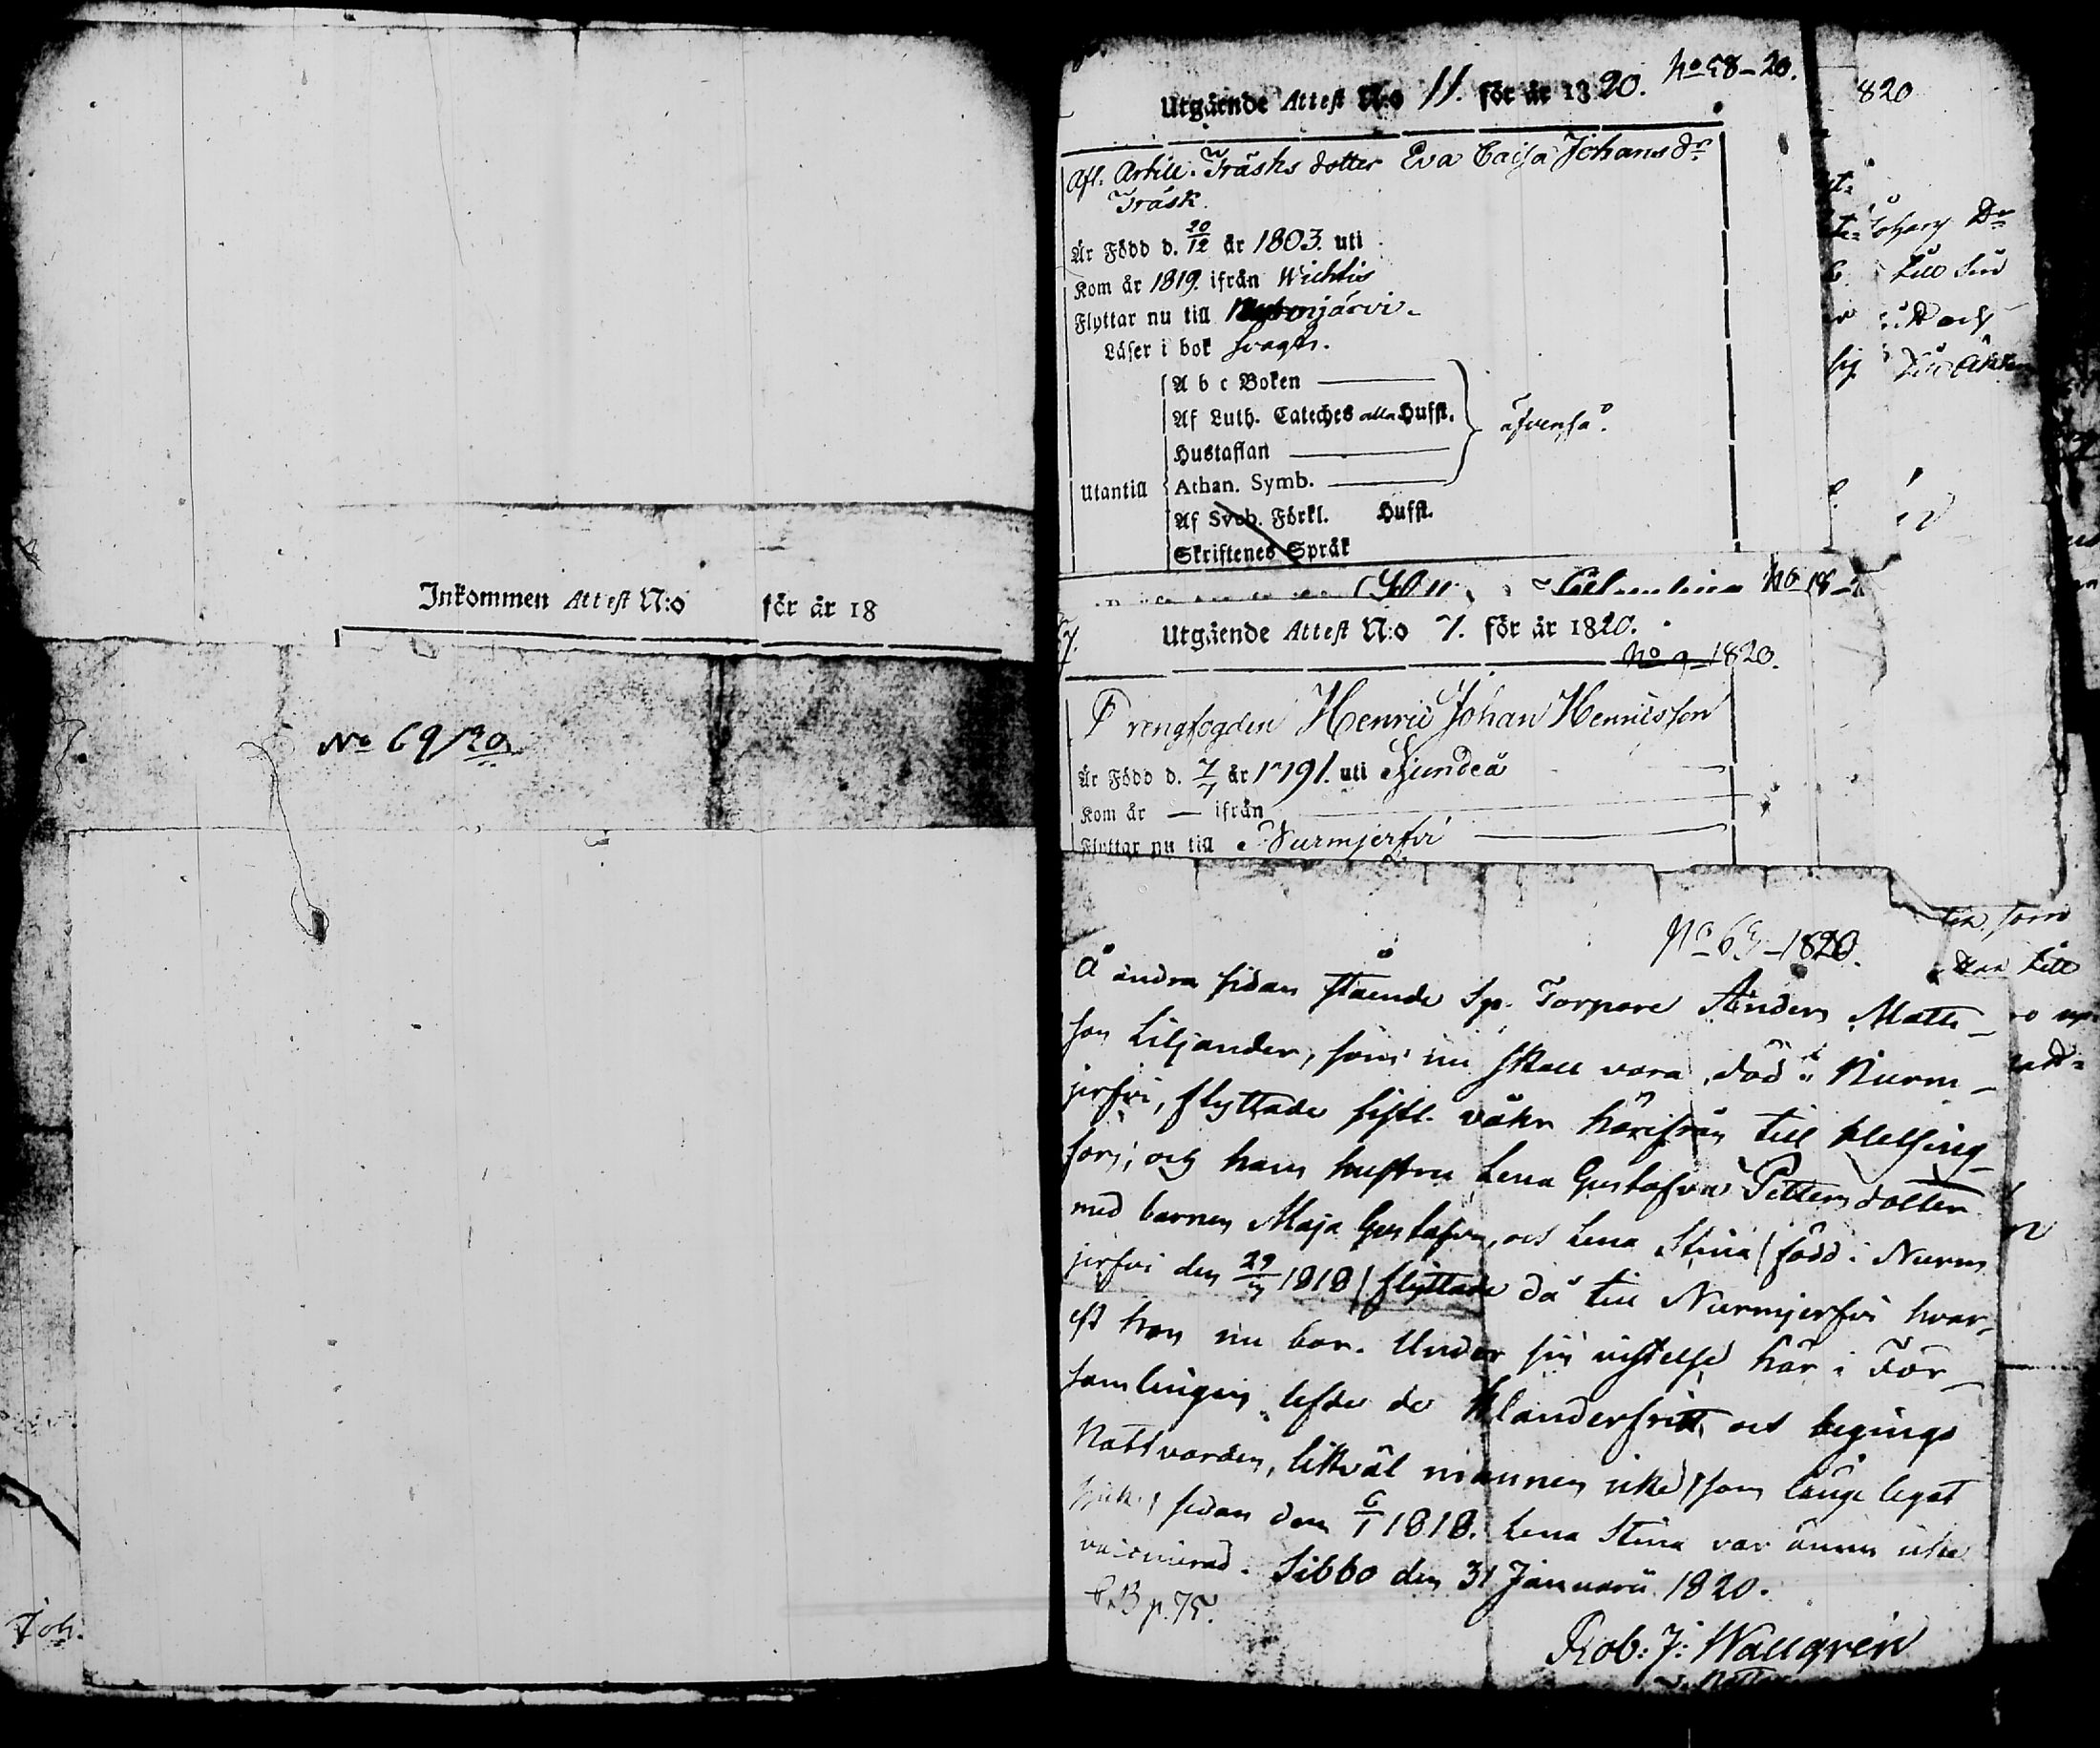 Inkommen Attest N:o för år 18
No 69/20
Joh.
No 58-20.
Utgående Attest N:o 11. för år 1820.
Afl. Artill. Träsks dotter Eva Caisa Johans dr
Träsk.
Är Född d. 20/12 år 1803. uti
Kom år 1819. ifrån Wichtis
Flyttar nu till Nurmijärvi.
Läser i bok svagt.
A b c Boken
Af Luth. Cateches alla Hufst.
Hustaflan
äfvenså.
Utantill
Athan. Symb.
Af Sveb. Förkl. Hufst.
Skriftenes Språk
No 18-2
7.
Utgående Attest N:o 7. för år 1820.
No 9-1820.
Drengfogden Henric Johan Henricsson
Är Född d. 7/7 år 1791. uti Sjundeå
Kom år — ifrån
Flyttar nu till Nurmjerfvi
No 63-1820.
Å andra sidan stående Sp. Torpare Anders Matts-
son Liljander, som nu skall vara död i Nurm-
jerfvi, flyttade sistl. våhr härifrån till Helsing-
fors; och hans hustru Lena Gustafva Pettersdotter
med barnen Maja Gustafva, och Lena Stina (född i Nurm
jerfvi den 1818) flyttade då till Nurmjerfvi hvar-
est hon nu bor. Under sin vistelse här i För-
samlingen lefde de klanderfritt och begingo
Nattvarden, likväl mannen icke, som länge legat
sjuk, sedan den 6/1 1818. Lena Stina var ännu icke
vaccinerad. Sibbo den 31 Januarii 1820.
C.B p. 75.
Rob: J: Wallgrén
820
Dr
till
och
som
till